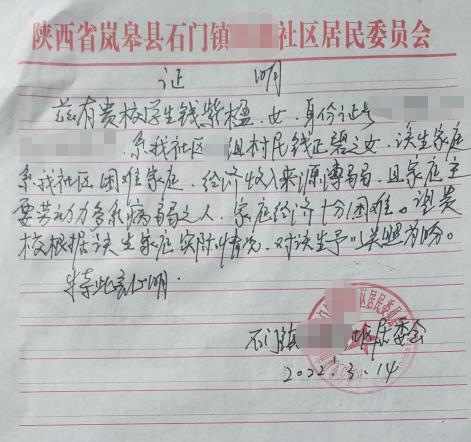 陕西省岚皋县石门镇 社区居民委员会
证 明
兹有贵校学生钱紫楹,女,身份证号
,系我社区 组村民钱正碧之女,该生家庭
系我社区困难家庭,经济收入来源薄弱,且家庭主
要劳动力多系病弱之人,家庭经济十分困难。望贵
校根据该生家庭实际情况,对该生予以关照为盼。
特此证明.
石门镇 社区居委会
2022.3.14
区居民委员